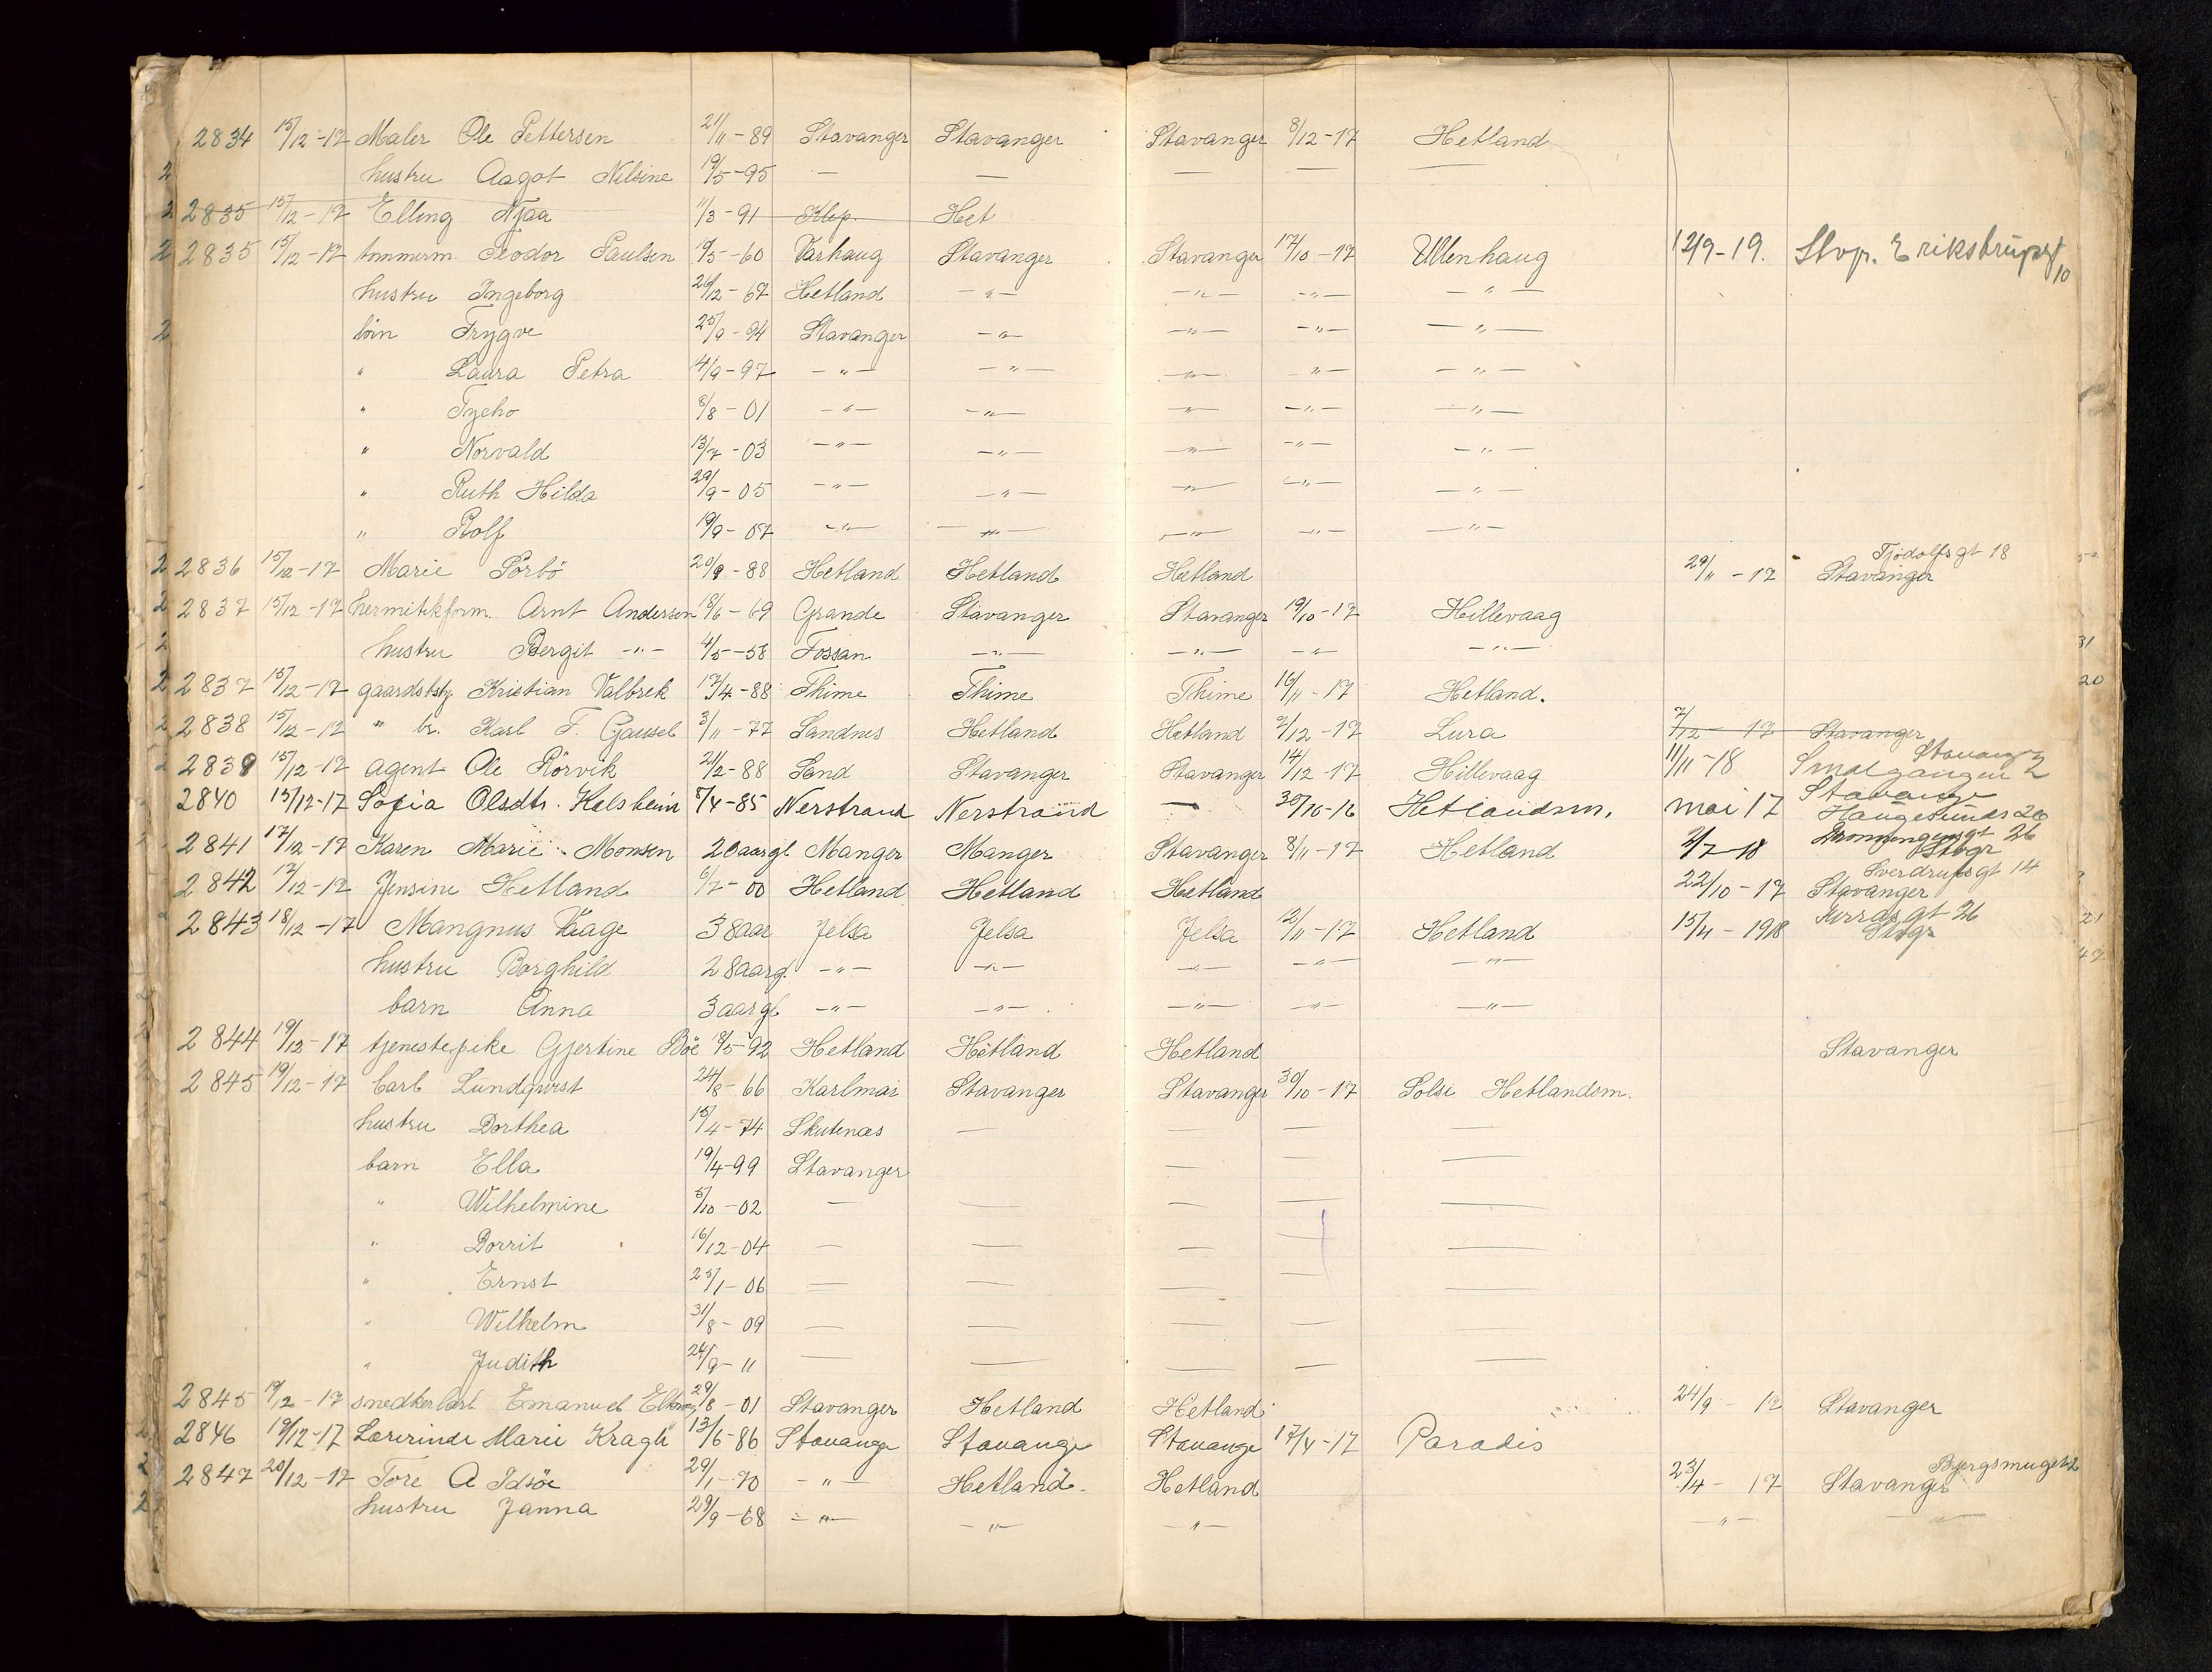 2834 15/12-17 Maler Ole Pettersen 21/11-89 Stavanger Stavanger Stavanger 8/12-17 Hetland
hustru Aagot Nilsine 19/5-95 — — — — —
2835 15/12-17 Elling Njaa 11/3-91 Klep Het
2835 15/12-17 tømmerm. Teodor Paulsen 19/5-60 Varhaug Stavanger Stavanger 17/10-17 Ullenhaug 12/9-19. Stvgr.
hustru Ingeborg 26/12-67 Hetland -"- -"- -"- -"-
børn Trygve 25/9-94 Stavanger -"- -"- -"- -"-
" Laura Petra 4/9-97 -"- -"- -"- -"- -"-
" Tycho 8/8-01 -"- -"- -"- -"- -"-
" Norvald 13/7-03 -"- -"- -"- -"- -"-
" Ruth Hilda 29/9-05 -"- -"- -"- -"- -"-
" Rolf 19/9-07 -"- -"- -"- -"- -"-
2836 15/12-17 Marie Sørbö 20/9-88 Hetland Hetland Hetland 29/11-17 Stavanger Tjodolfsgt 18
2837 15/12-17 hermitikform. Arnt Andersen 18/6-69 Grande Stavanger Stavanger 19/10-17 Hillevaag
hustru Bergit -"- 4/5-58 Fossan -"- -"- -"- -"-
2837 15/12-17 gaardsbstj. Kristian Valbrek 17/4-88 Thime Thime Thime 16/11-17 Hetland.
2838 15/12-17 " br. Karl F. Gausel 3/11-77 Sandnes Hetland Hetland 7/12-17 Lura 7/12-17 Stavanger
2839 15/12-17 agent Ole Rörvik 21/2-88 Sand Stavanger Stavanger 14/12-17 Hillevaag 11/11-18 Smalgangen 2 Stavanger
2840 15/12-17 Sofia Olsdtr. Helsheim 8/4-85 Nerstrand Nerstrand — 30/10-16 Hetlandsm. mai 17 Stavange Haugesunds 20
2841 17/12-17 Karen Marie Monsen 20aargl Manger Manger Stavanger 8/11-17 Hetland 2/7-18 Dronningensgt 26 Stvgr
2842 17/12-17 Jensine Hetland 6/7-00 Hetland Hetland Hetland 22/10-17 Stavanger Sverdrupsgt 14
2843 18/12-17 Mangnus Vaage 38aar Jelsa Jelsa Jelsa 12/11-17 Hetland 15/4-1918 gt 26 Stvgr
hustru Borghild 28aarg. -"- -"- -"- -"- -"-
barn Anna 3aargl -"- -"- -"- -"- -"-
2844 19/12-17 tjenestepike Gjertine Böe 19/5-92 Hetland Hetland Hetland Stavanger
2845 19/12-17 Carl Lundqvist 24/8-66 Karlmar Stavanger Stavanger 30/10-17 Solsi Hetlandsm.
hustru Dorthea 15/4-74 Skutenæs — — — —
barn Ella 19/4-99 Stavanger — — —
" Wilhelmine 5/10-02 — — — — —
" Dorrit 16/12-04 — — — — —
" Ernst 25/1-06 — — — — —
" Wilhelm 31/8-09 — — — — —
" Judith 24/9-11 — — — — —
2845 19/12-17 snedkerlærl Emanuel 29/8-01 Stavanger Hetland Hetland 24/9-17 Stavanger
2846 19/12-17 Lærerinde Marie Kragh 13/6-86 Stavange Stavange Stavange 17/4-17 Paradis
2847 20/12-17 Tore A Idsöe 29/1-70 -"- Hetland Hetland 23/4-17 Stavanger Bjergsmuget 2
hustru Janna 29/9-68 -"- -"- -"- -"- -"-